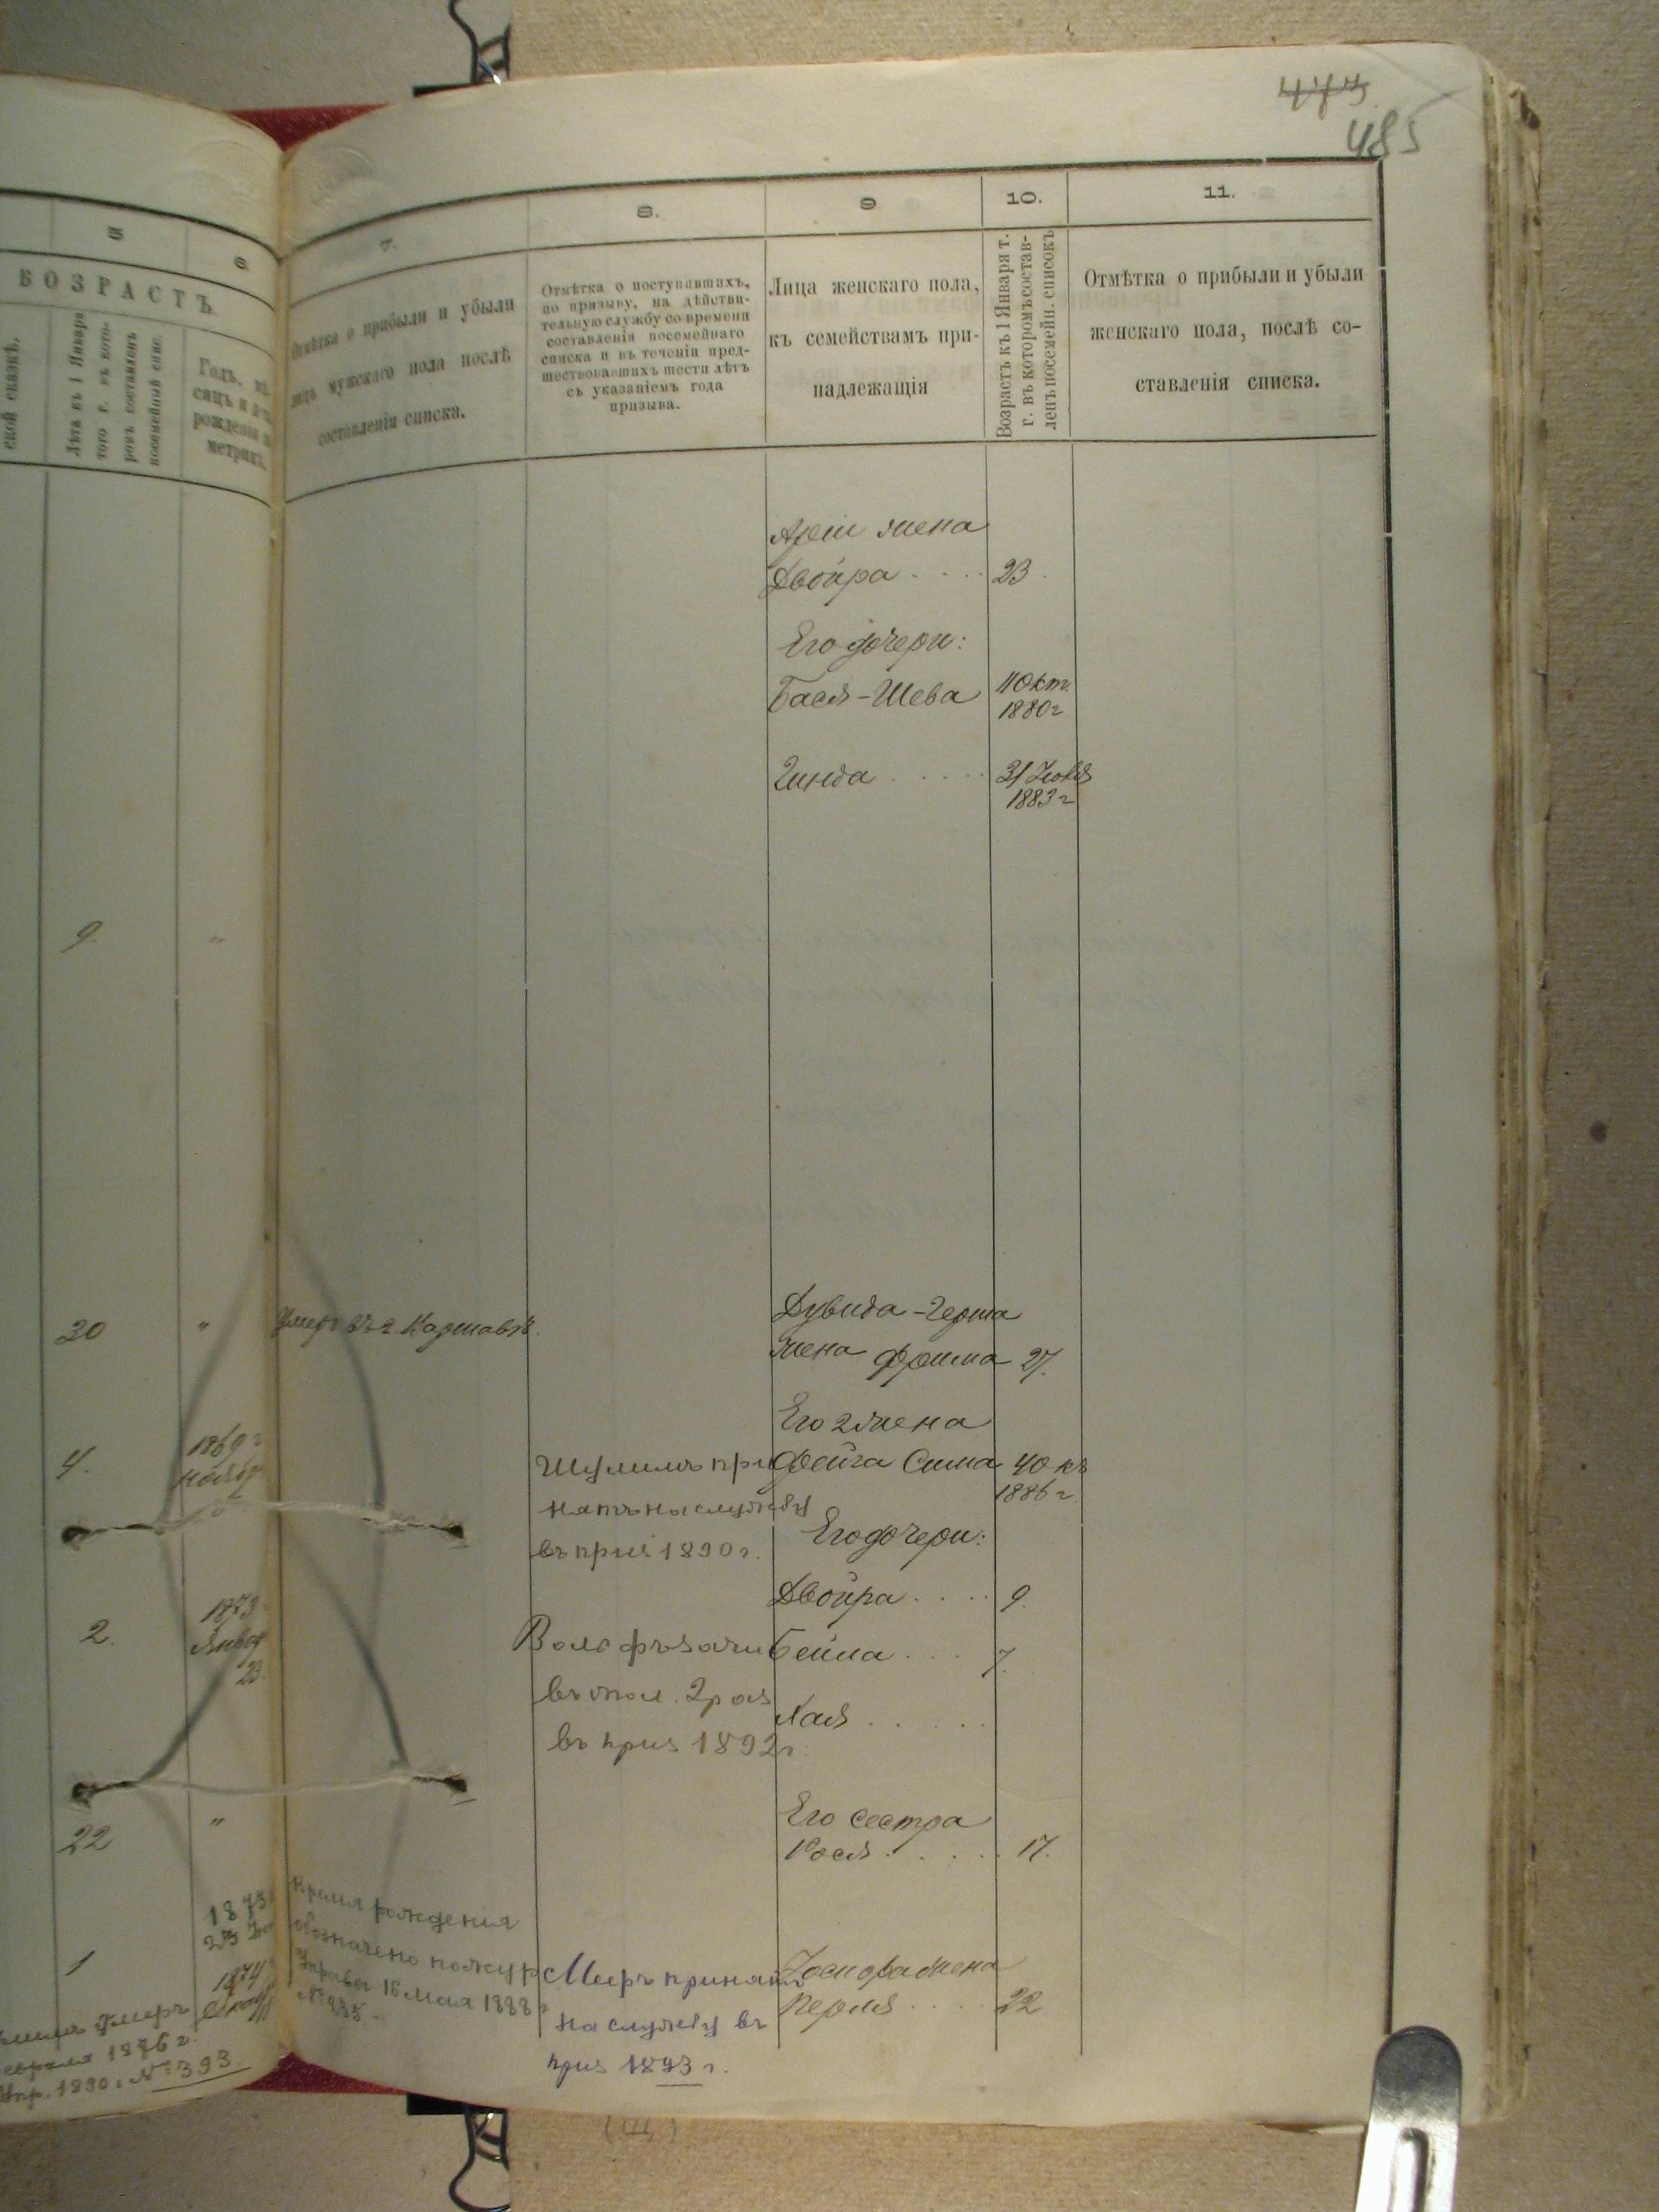 473
485
5
6
7.
8.
9
10.
11.
ВОЗРАСТЪ
ской сказкѣ.
Лѣтъ къ 1 Января
того г. въ кото-
ромъ составленъ
посемейный спис.
Годъ, мѣ-
сяцъ и
рожденія
метрикѣ.
Отмѣтка о прибыли и убыли
лицъ мужскаго пола послѣ
составленія списка.
Отмѣтка о поступавшихъ,
по призыву, на дѣйстви-
тельную службу со времени
составленія посемейнаго
списка и въ теченіи пред-
шествовавшихъ шести лѣтъ
съ указаніемъ года
призыва.
Лица женскаго пола,
къ семействамъ при-
надлежащія
Возрастъ къ 1 Января т.
г. въ которомъ состав-
ленъ посемейн. списокъ
Отмѣтка о прибыли и убыли
женскаго пола, послѣ со-
ставленія списка.
жена
Двойра . . . . 23.
Его дочери:
Бася-Шева
11 Окт.
1880 г
Гинда . . . . .
31
1883 г
9.
"
20
"
Умеръ въ г.
Дувида-Герша
жена Фрима 27.
Его 2 жена
Фейга Сима 40 къ
1886 г.
4.
1869 г
Ноябр
Шулимъ при
нятъ на службу
въ приз 1890 г.
Его дочери:
Двойра . . . . 9.
Бейла . . . 7.
Хая . . . . .
2.
1873
Январ
23
Вольфъ зачи
въ опол. 2 раз
въ приз 1892 г.
Его сестра
Рося . . . . . 17.
22
"
1
1873
1874
Время рожденія
обозначено по жур
Управы 16 Мая 1888 г
Меръ принятъ
на службу въ
приз 1893 г.
жена
Перля . . . . 22.
умеръ
евраля 1876 г.
Упр. 1890 г. № 393